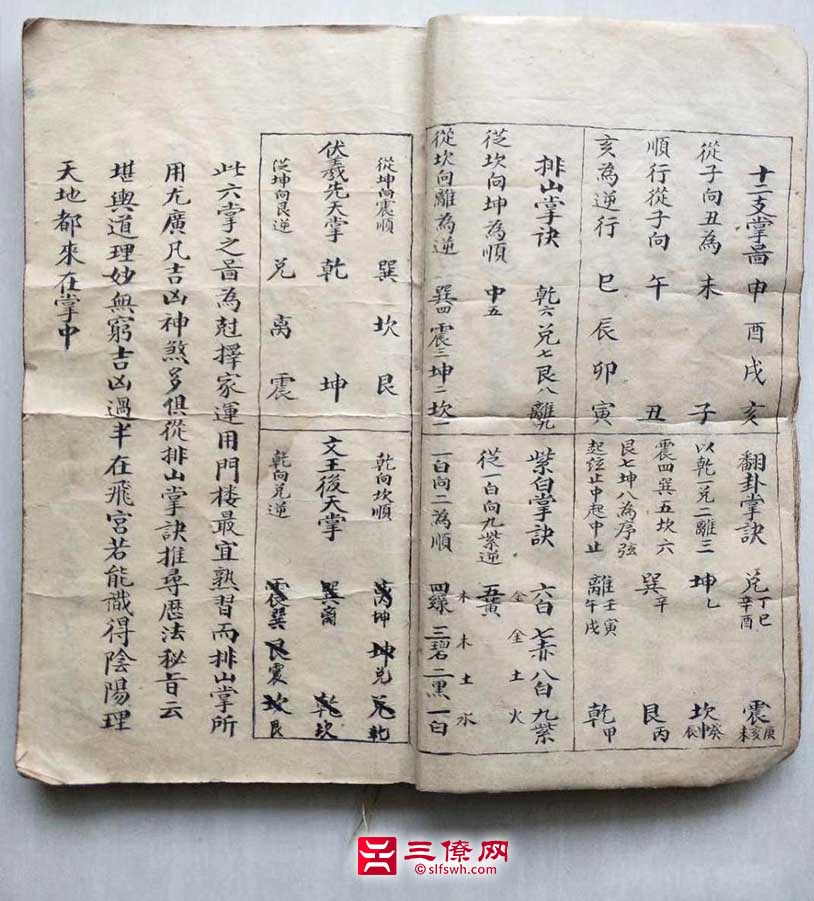 十二支掌啚 申 酉 戌 亥
從子向丑為 未 子
順行從子向 午 丑
亥為逆行 巳 辰 卯 寅
翻卦掌訣 兌丁巳辛酉 震庚亥未
以乾一兌二離三 坤乙 坎癸申辰
震四巽五坎六 巽辛 艮丙
艮七坤八為序弦
起弦止中起中止 離壬寅午戌 乾甲
排山掌訣 乾六 兌七 艮八 離九
從坎向坤為順 中五
從坎向離為逆 巽四 震三 坤二 坎一
紫白掌訣 六白 七赤 八白 九紫
金 金 土 火
從一白向九紫逆 五黃
一白向二為順 四綠 三碧 二黑 一白
木 木 土 水
從坤向震順 巽 坎 艮
伏羲先天掌 乾 坤
從坤向艮逆 兌 离 震
乾向坎順 离坤 坤兌 兌乾
文王後天掌 巽离 乾坎
乾向兌逆 震巽 艮震 坎艮
此六掌之啚為尅擇家運用門楼最宜熟習而排山掌所
用尤廣凡吉凶神煞多俱從排山掌訣推尋歷法秘旨云
堪輿道理妙無窮吉凶過半在飛宮若能識得陰陽理
天地都來在掌中
三僚网
slfswh.com